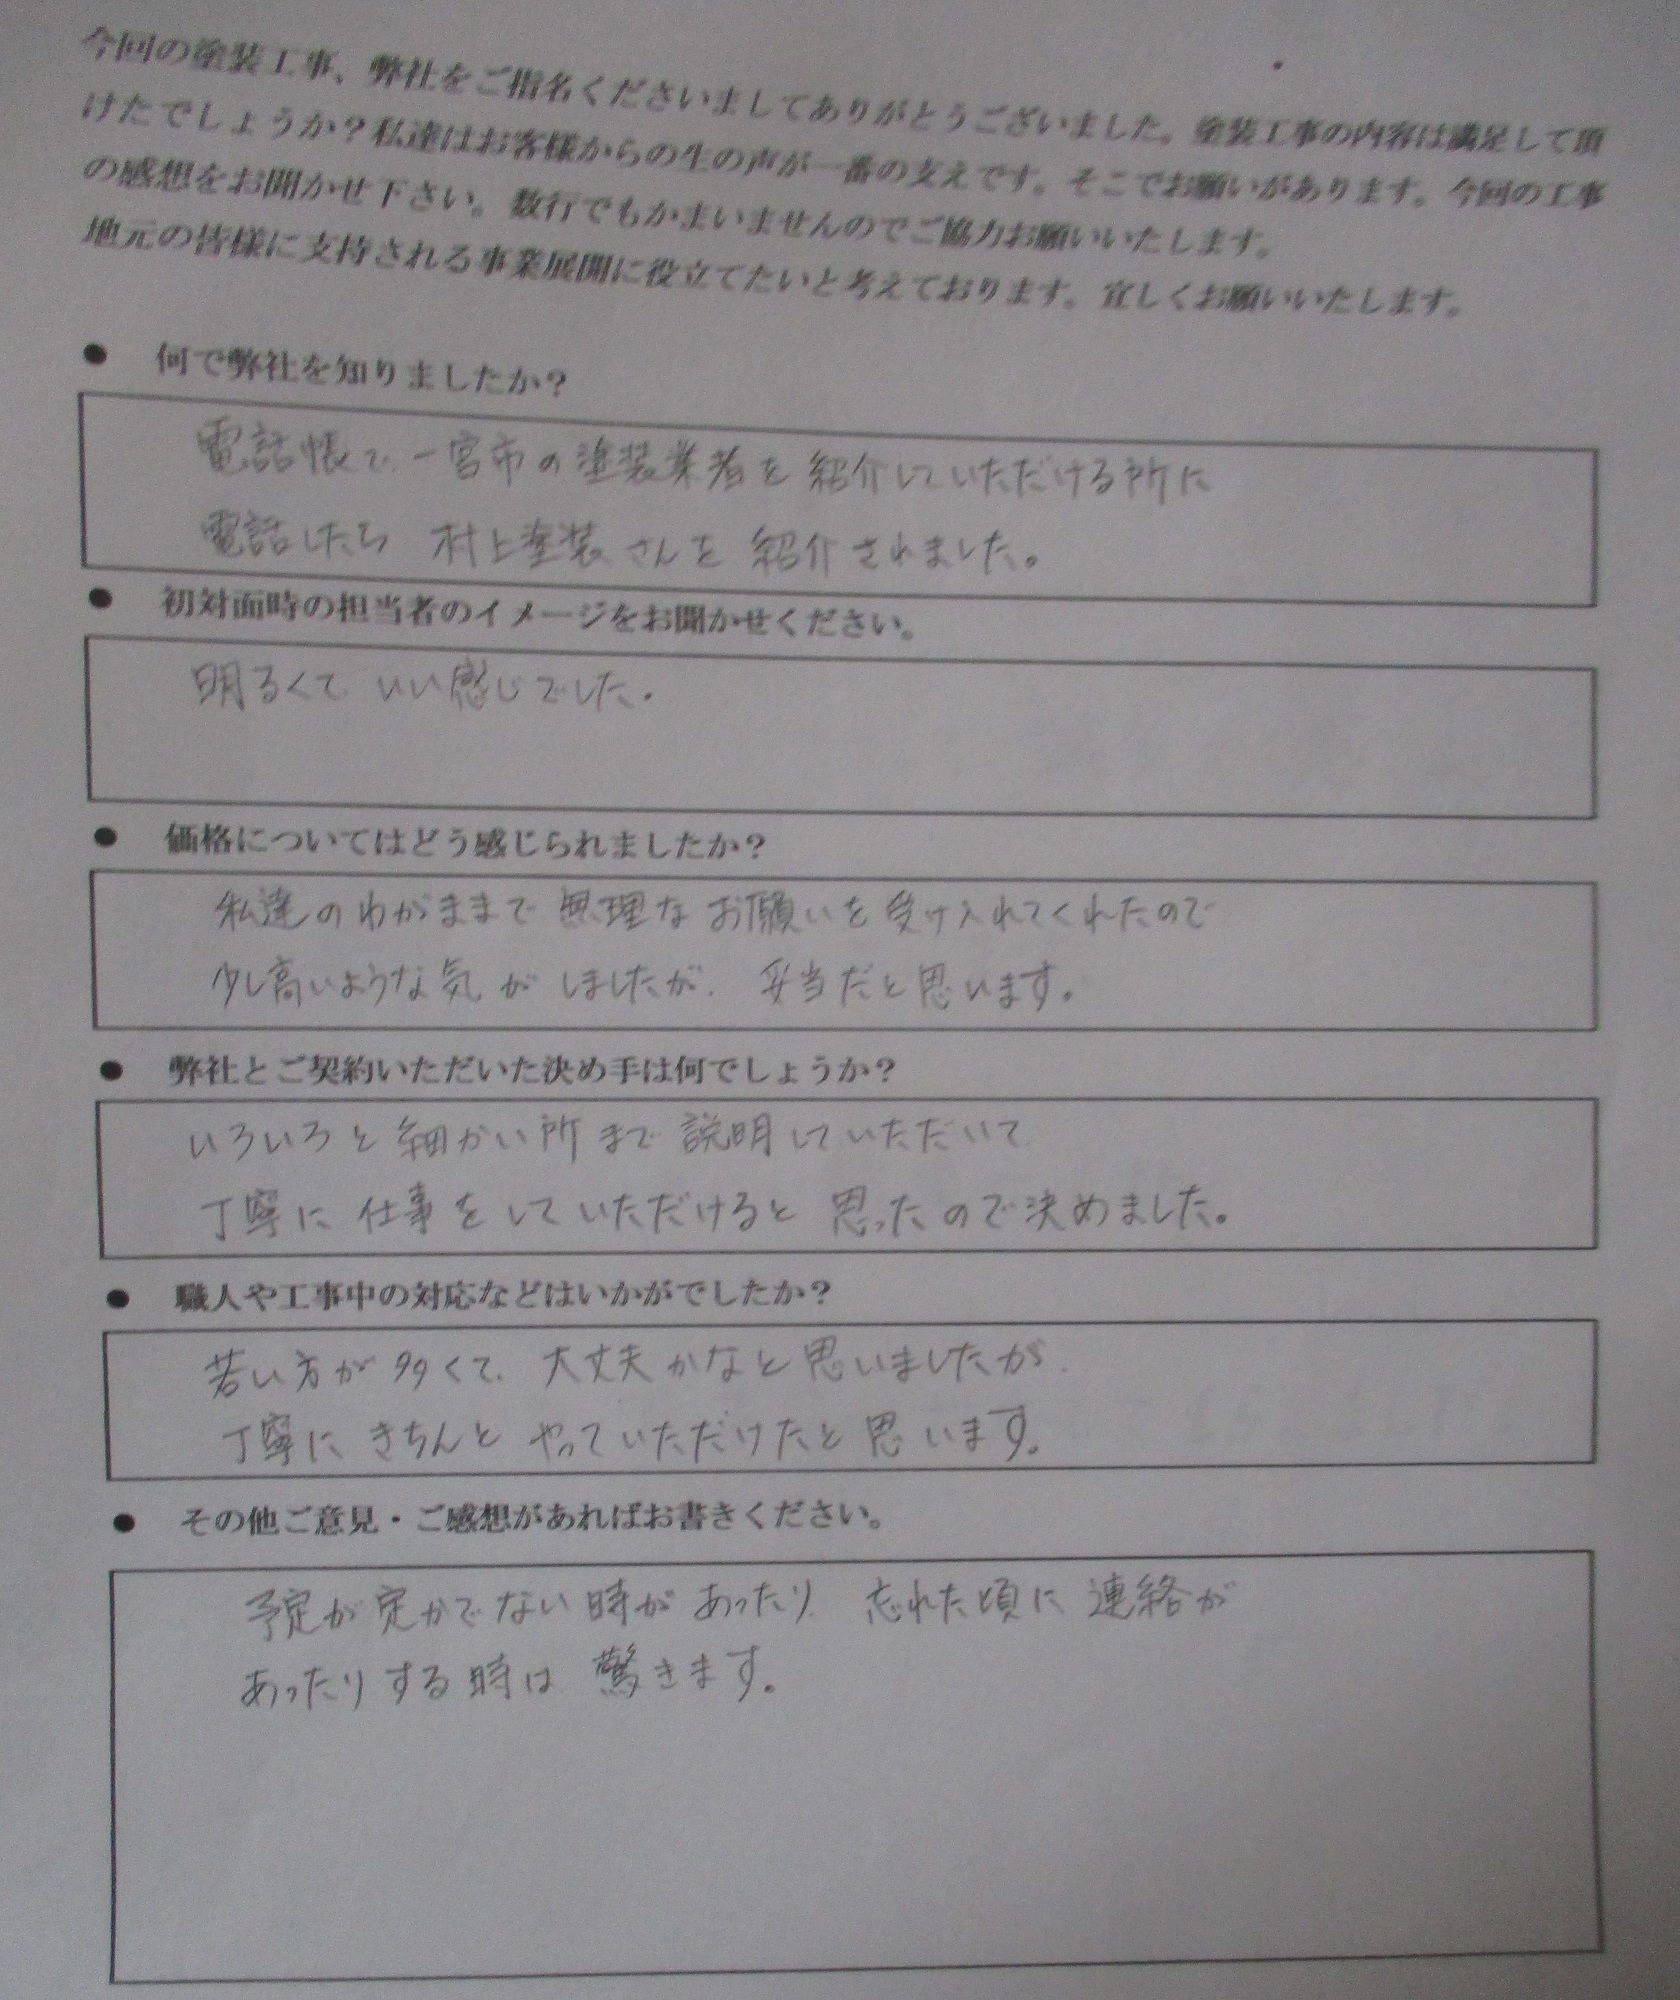 今回の塗装工事、弊社をご指名くださいましてありがとうございました。塗装工事の内容は満足して頂
けたでしょうか？私達はお客様からの生の声が一番の支えです。そこでお願いがあります。今回の工事
の感想をお聞かせ下さい。数行でもかまいませんのでご協力お願いいたします。
地元の皆様に支持される事業展開に役立てたいと考えております。宜しくお願いいたします。
● 何で弊社を知りましたか？
電話帳で、一宮市の塗装業者を紹介していただける所に
電話したら 村上塗装さんを 紹介されました。
● 初対面時の担当者のイメージをお聞かせください。
明るくて いい感じでした。
● 価格についてはどう感じられましたか？
私達のわがままで 無理なお願いを受け入れてくれたので
少し高いような気がしましたが、妥当だと思います。
● 弊社とご契約いただいた決め手は何でしょうか？
いろいろと細かい所まで説明していただいて
丁寧に仕事をしていただけると思ったので決めました。
● 職人や工事中の対応などはいかがでしたか？
若い方が多くて、大丈夫かなと思いましたが、
丁寧にきちんと やっていただけたと思います。
● その他ご意見・ご感想があればお書きください。
予定が定かでない時があったり、忘れた頃に連絡が
あったりする時は 驚きます。